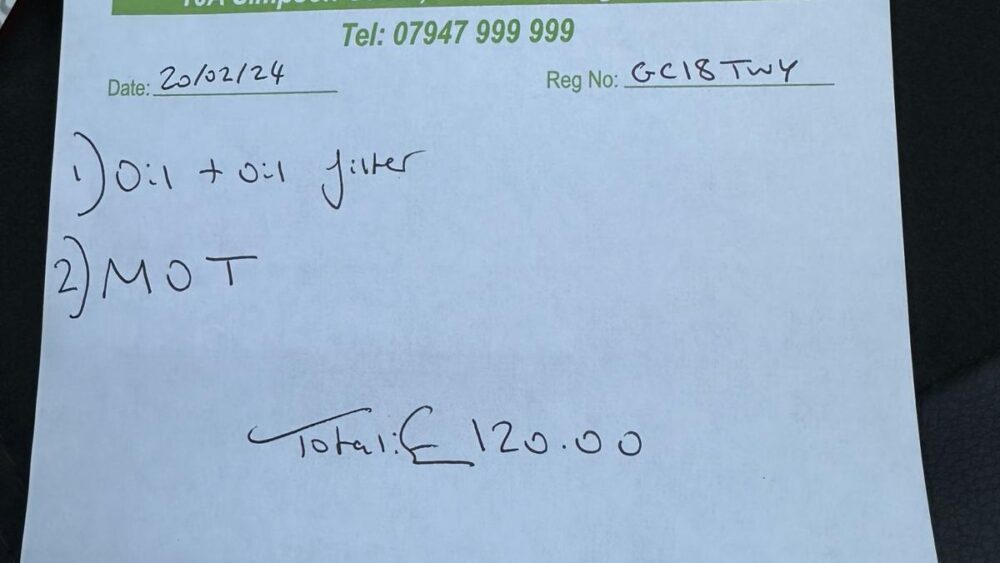 Tel: 07947 999 999
Date: 20/02/24 Reg No: GC18 TWY
1) Oil + oil filter
2) MOT
Total: £120.00